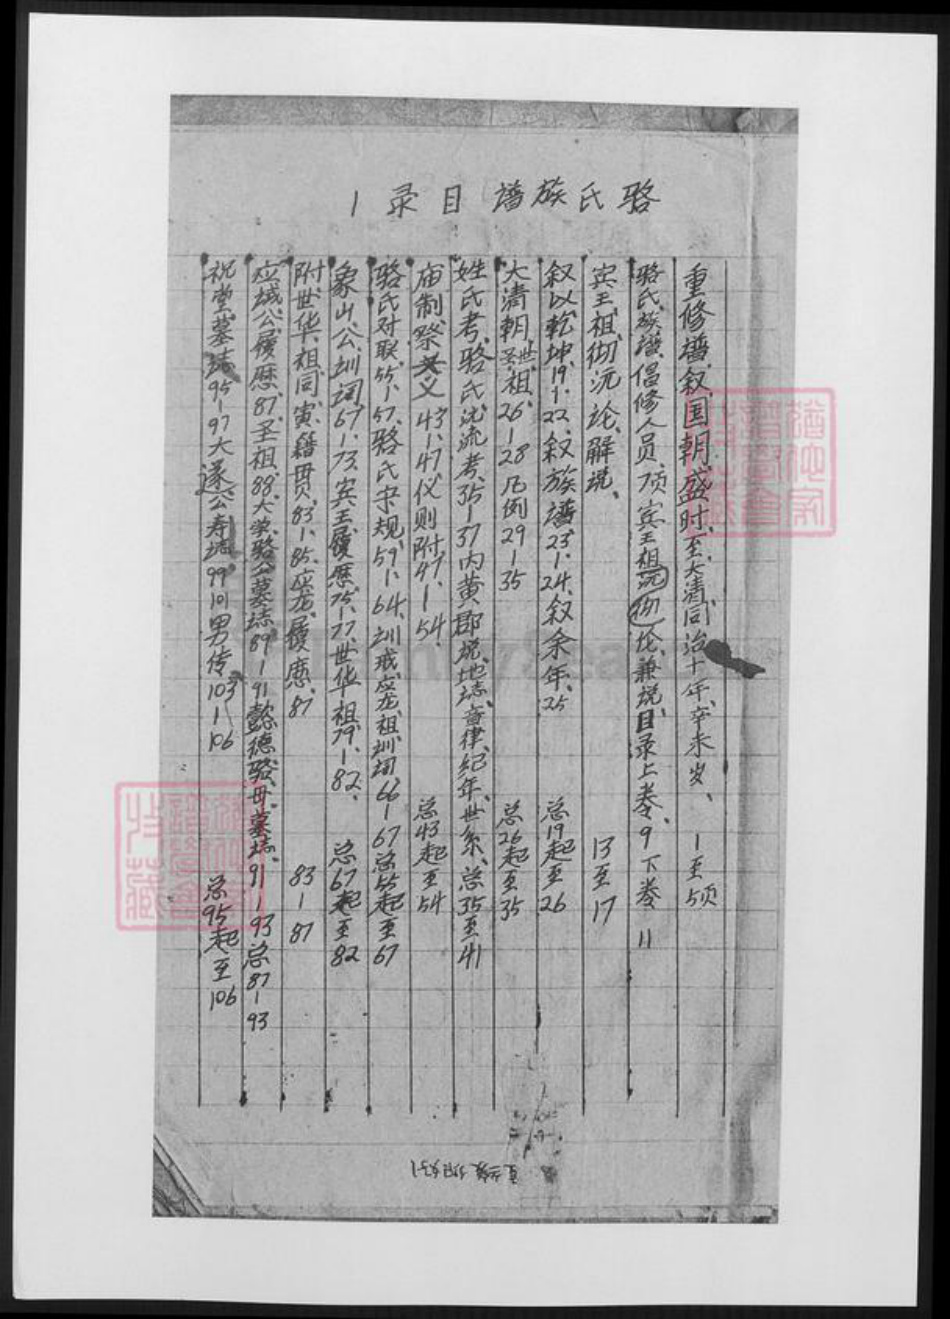 骆氏族谱 目录 1
重修谱叙国朝盛时、至大清同治十年、辛未岁、 1至5页
骆氏族谱倡修人员7页、宾王祖沉彻伦兼说目录上卷、9 下卷 11
宾王祖彻沉论解说、 13至17
叙以乾坤、19-22叙族谱23-24、叙余年、25 总19起至26
大清朝圣世祖、26-28凡例29-35 总26起至35
姓氏考、骆氏沈流考、35-37内黄郡说、地志、音律、纪年、世系、总35至41
庙制、祭义43-47仪则附47-54、 总43起至54
骆氏对联、55-57、骆氏宗规、59-64、训戒、应龙祖训词、66-67总55起至67
象山公训词67-73、宾王履历75-77、世华祖79-82、 总67起至82
附世华祖同寅籍贯、83-85、应龙履历、87 83-87
应城公履历、87、圣祖、88、大学骆公墓志89-91懿德骆母墓志、91-93总87-93
祝堂墓志95-97大遂公寿志99-101男传103-106 总95起至106